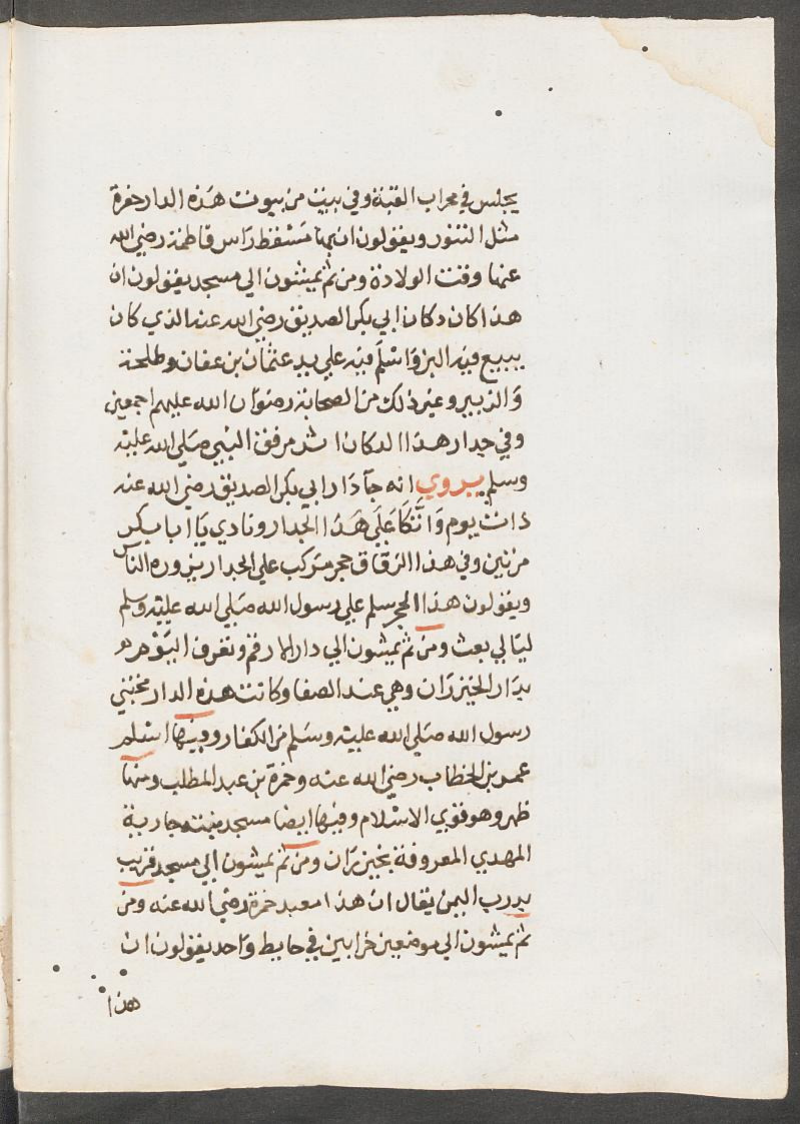 يجلس في محراب القبة وفي بيت من بيوت هذه الدار حفرة
مثل التنور ويقولون ان بها مسقط راس فاطمة رضي الله
عنها وقت الولادة ومن ثم يمشون الي مسجد يقولون ان
هذا كان دكان ابي بكر الصديق رضي الله عنه الذي كان
يبيع فيه البز واسلم فيه علي يد عثمان بن عفان وطلحة
والزبير وغير ذلك من الصحابة رضوان الله عليهم اجمعين
وفي جدار هذا الدكان اثر مرفق النبي صلي الله عليه
وسلم يروي انه جآ دار ابي بكر الصديق رضي الله عنه
ذات يوم واتكا علي هذا الجدار ونادي يا ابا بكر
مرتين وفي هذا الزقاق حجر مركب علي الجدار يزوره الناس
ويقولون هذا الحجر سلم علي رسول الله صلي الله عليه وسلم
ليالي بعث ومن ثم يمشون الي دار الارقم وتعرف اليوم
بدار الخيزران وهي عند الصفا وكانت هذه الدار مختبي
رسول الله صلي الله عليه وسلم من الكفار وفيها اسلم
عمر بن الخطاب رضي الله عنه وحمزة بن عبد المطلب ومنها
ظهر وهو قوي الاسلام وفيها ايضا مسجد بنته جارية
المهدي المعروفة بخيزران ومن ثم يمشون الي مسجد قريب
بدرب اليمن يقال ان هذا معبد حمزة رضي الله عنه ومن
ثم يمشون الي موضعين خرابين في حايط واحد يقولون ان
هذا